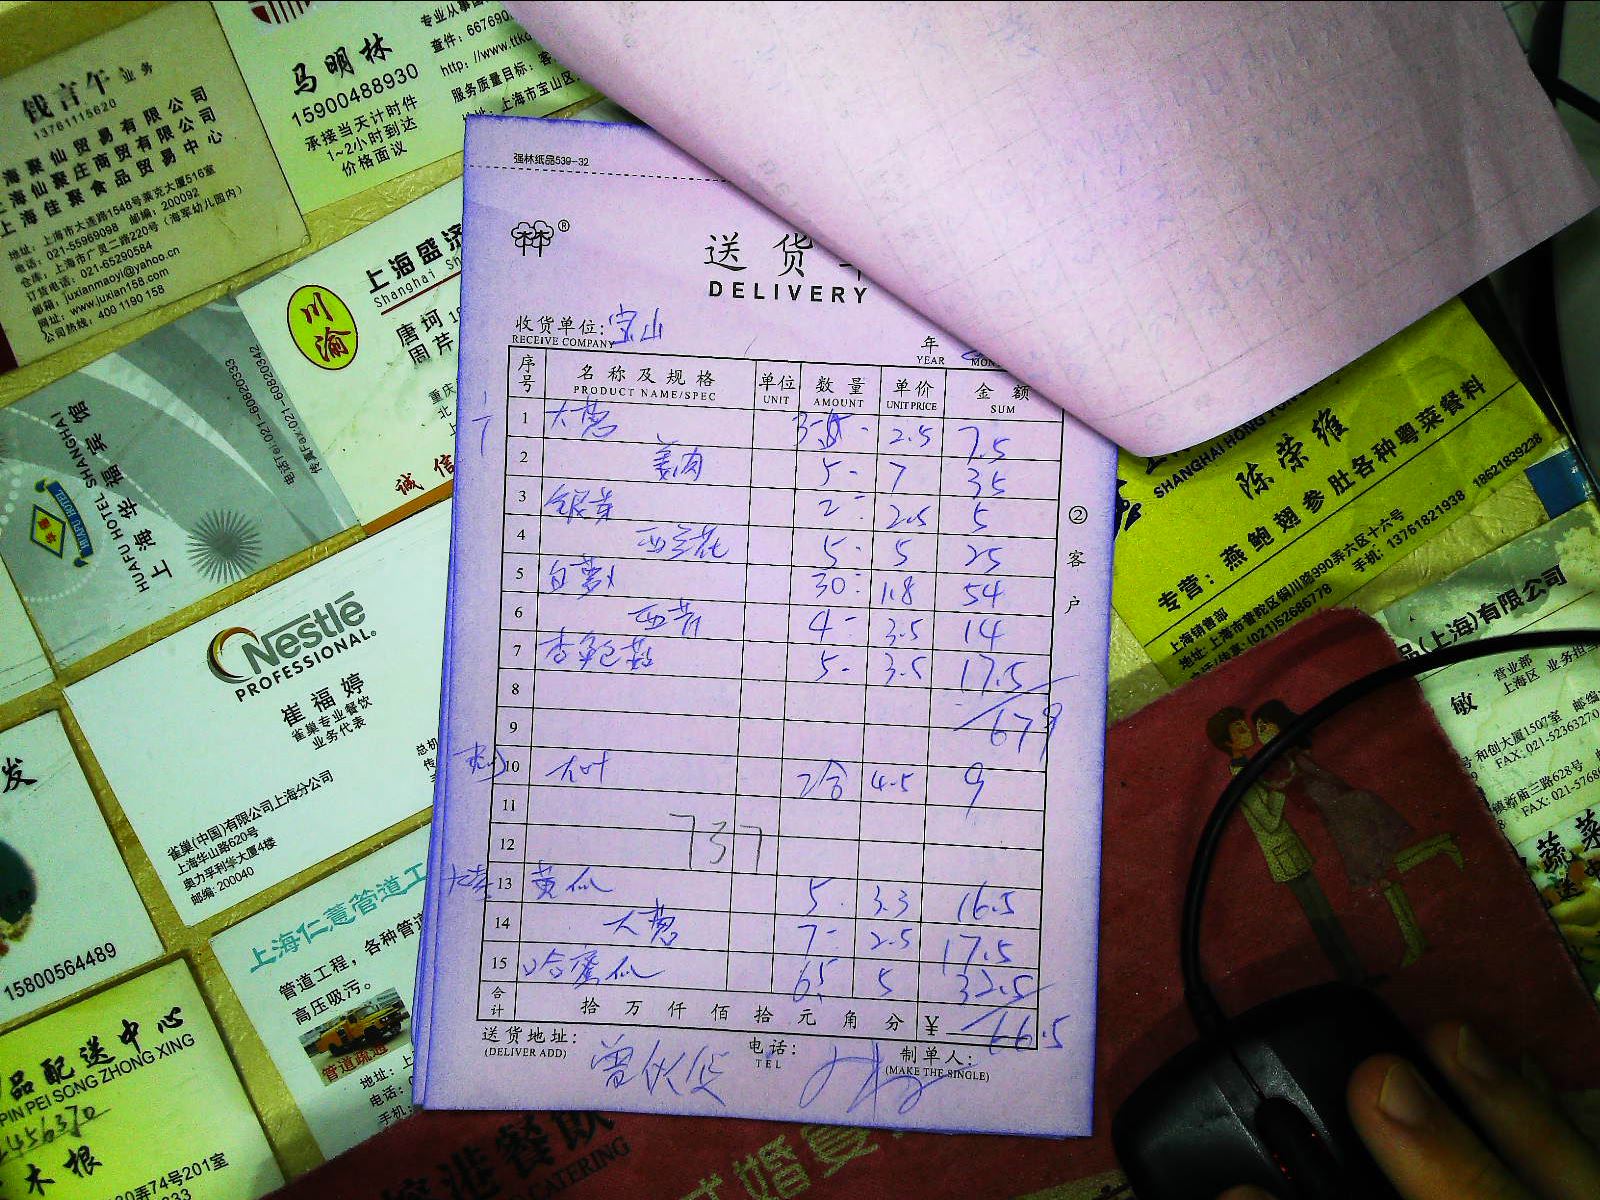 强林纸品539-32
送货单
DELIVERY
收货单位: 宝山
RECEIVE COMPANY
年
YEAR
序号 名称及规格 单位 数量 单价 金额
PRODUCT NAME/SPEC UNIT AMOUNT UNIT PRICE SUM
1 大葱 2.5 7.5
2 姜肉 5 7 35
3 银芽 2 2.5 5
4 西兰花 5 5 25
5 白萝卜 30 1.8 54
6 西芹 4 3.5 14
7 5 3.5 17.5
8
9 679
10 大叶 2合 4.5 9
11
12 737
13 黄瓜 5 3.3 16.5
14 大葱 7 2.5 17.5
15 哈蜜瓜 65 5 32.5
合计 拾 万 仟 佰 拾 元 角 分 ¥ 66.5
送货地址: 电话: 制单人:
(DELIVER ADD) TEL (MAKE THE SINGLE)
② 客户
钱言午 业务
13761115620
海聚仙贸易有限公司
上海仙聚庄商贸有限公司
上海佳聚食品贸易中心
地址: 上海市大连路1548号莱克大厦516室
电话: 021-55969098 邮编: 200092
仓库: 上海市广灵二路220号(海军幼儿园内)
订货电话: 021-65290584
邮箱: juxianmaoyi@yahoo.cn
网址: www.juxian158.com
公司热线: 400 1190 158
马明林
15900488930
承接当天计时件
1~2小时到达
价格面议
专业从事国
查件: 667690
http: //www.ttko
服务质量目标: 客
上海市宝山区
川渝
上海盛济
Shanghai Sh
唐珂
周芹
重庆
北
诚信
上海华福宾馆
HUAFU HOTEL SHANGHAI
电话Tel:021-60820333
传真Fax:021-60820342
Nestlé
PROFESSIONAL.
崔福婷
雀巢专业餐饮
业务代表
雀巢(中国)有限公司上海分公司
上海华山路620号
奥力孚利华大厦4楼
邮编: 200040
总机
发
15800564489
上海仁薏管道工
管道工程, 各种管道
高压吸污。
管道疏通
地址:
电话:
手机:
品配送中心
PIN PEI SONG ZHONG XING
木根
弄74号201室
SHANGHAI HONG
陈荣维
专营: 燕鲍翅参肚各种粤菜餐料
上海销售部
地址: 上海市普陀区铜川路990弄六区十六号
(021)52686778
手机: 13761821938 18621839238
品(上海)有限公司
敏
营业部
上海区
和创大厦1507室
FAX: 021-52363270
镇新庙三路628号
FAX: 021-5768
蔬菜
送中
CATERING